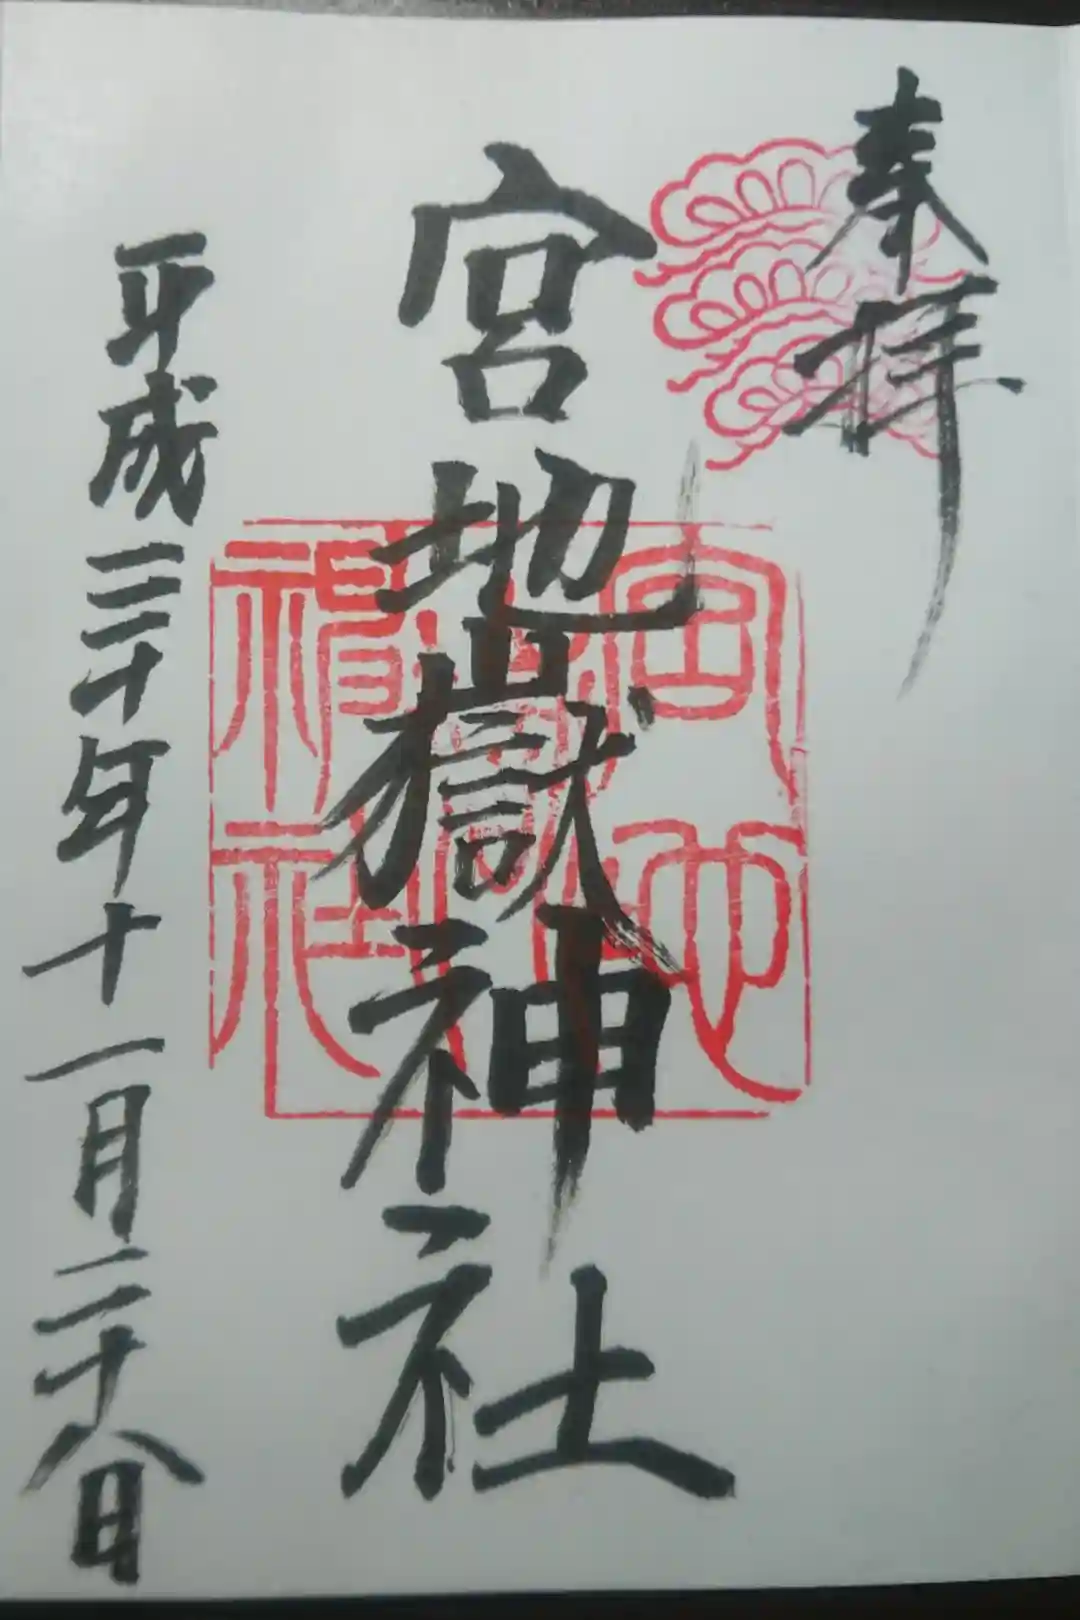 奉拝
宮地嶽神社
平成三十年十一月二十八日
宮地嶽神社